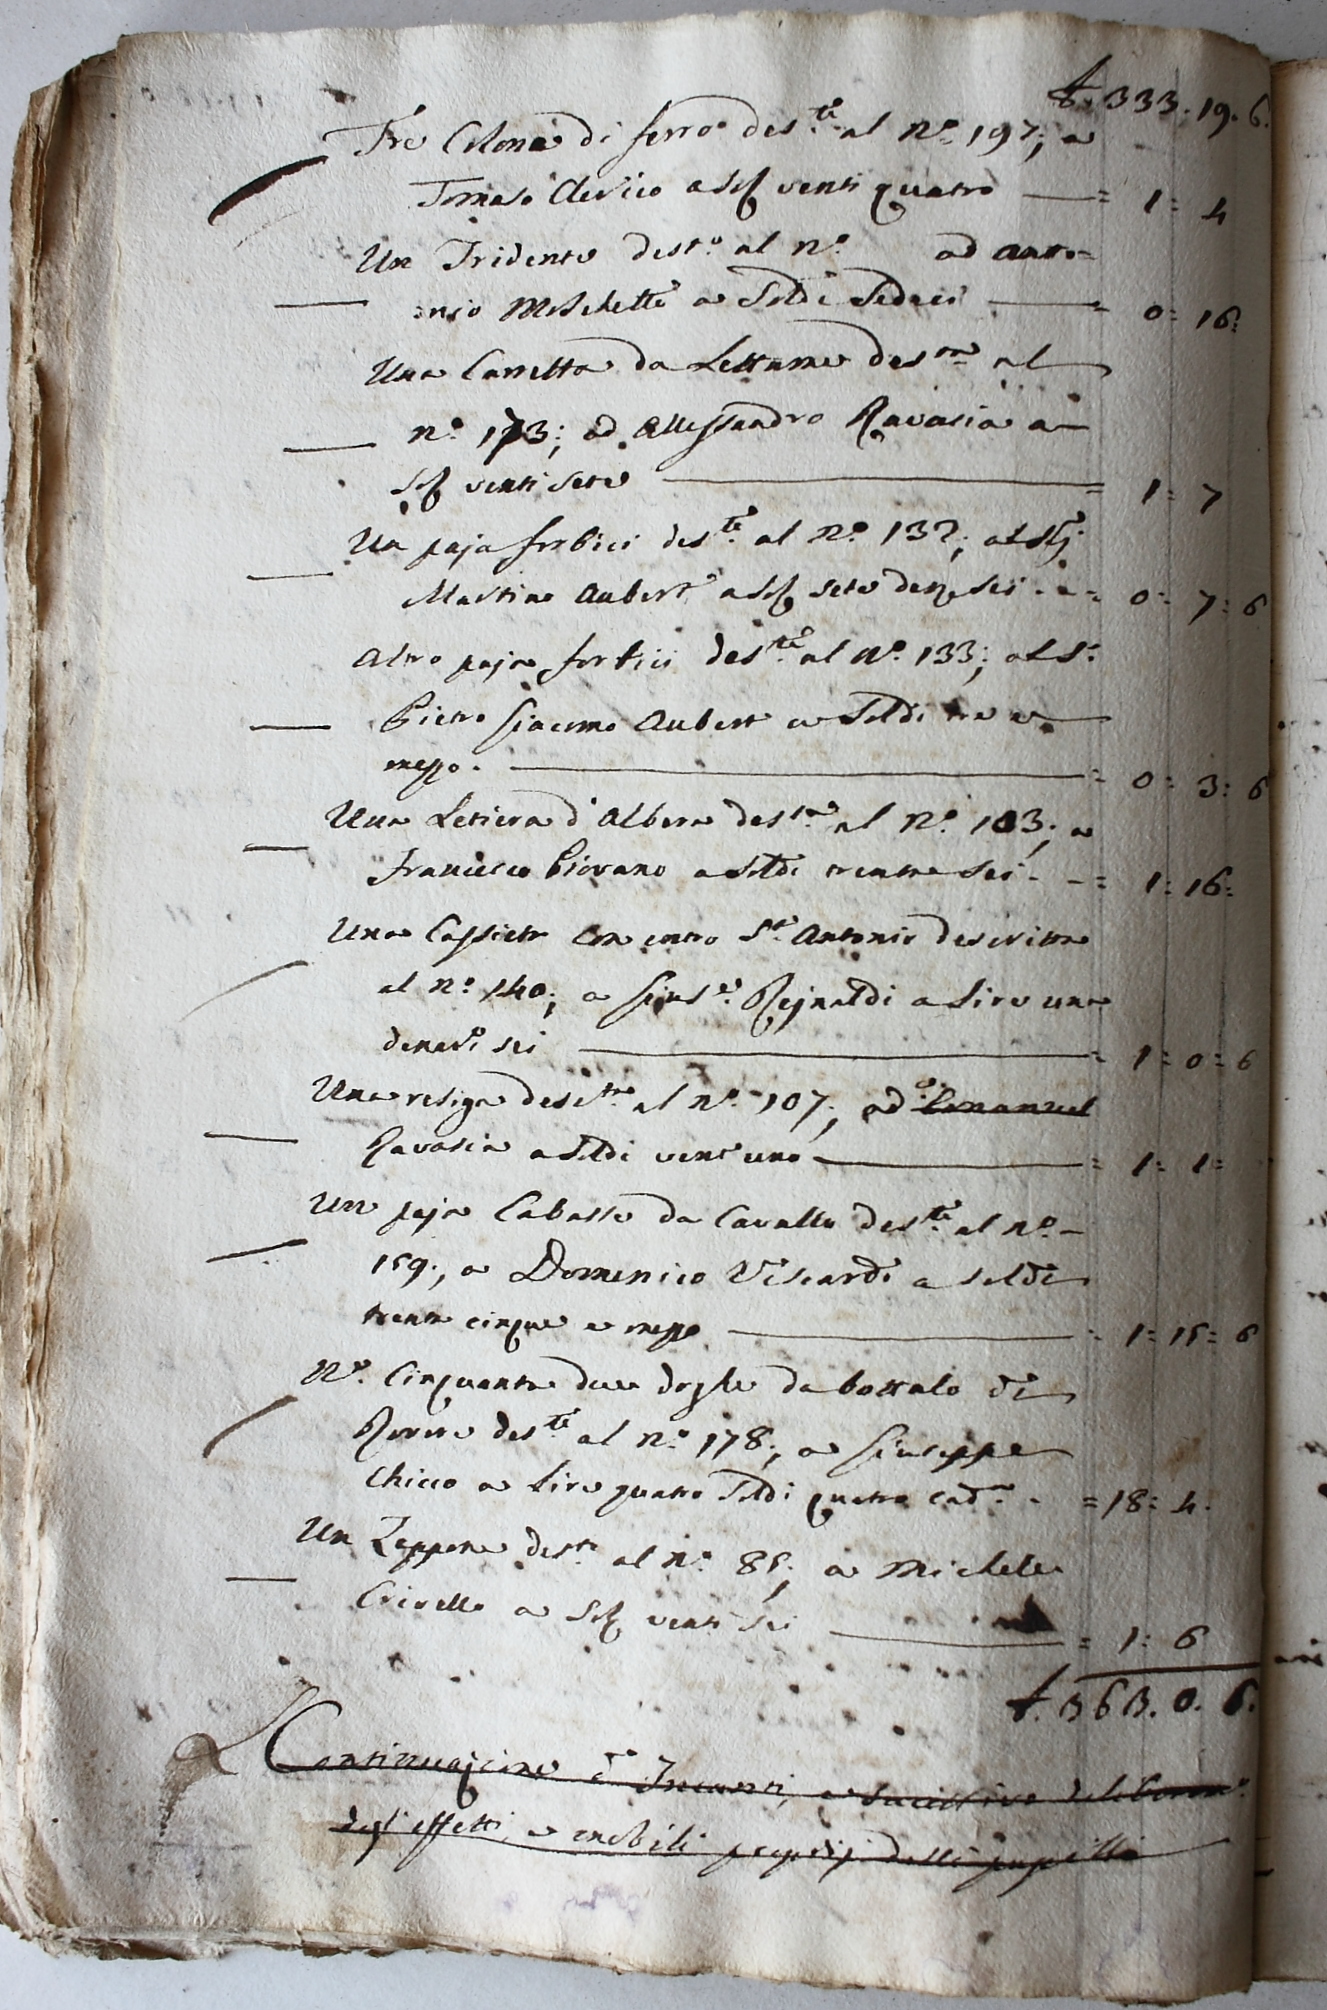 £. 333. 19. 6.
Tre Colone di ferro des.te al n.o 197; a
Tomaso Clerico a sol venti quatro = 1: 4
Un Tridente dest.o al n.o ad anto=
nio Moschetti a Soldi Sedeci = 0: 16:
Una Carretta da Lettame des.ta al
n.o 173; ad Allessandro Ravasia a
sol venti sete = 1: 7
Un paja forbici des.te al n.o 132; al Sig.r
Martino Aubert a sol sete den. sei = 0: 7: 6
Altro paja forbici des.te al n.o 133; al S.r
Pietro Giacomo Aubert a Soldi tre e
mezzo. = 0: 3: 6
Una Letiera d'Albera des.ta al n.o 103; a
Francesco Giovano a Soldi trenta Sei = 1: 16:
Una Cassieta con entro S.t Antonio descritta
al n.o 140; a Gius.e Rejnaldi a Lire una
denari sei = 1: 0: 6
Una resiga desc.ta al n.o 107; ad Emanuel
Ravasia a Soldi vent'uno = 1: 1:
Un paja Cabasse da Cavallo des.te al n.o
159; a Domenico Viscardi a soldi
trenta cinque e mezzo = 1: 15: 6
N.o Cinquanta due doghe da bottalo di
Rovere des.te al n.o 178; a Giuseppe
Chicco a Lire quatro Soldi quatro = 18: 4.
Un Zappone des.to al n.o 85; a Michele
Crivello a Sol venti Sei = 1: 6
£. 363. 0. 6.
Continuazione d'Incanti, e sucessivo deliberam.o
degl'effetti, e mobili proprij delli pupilli